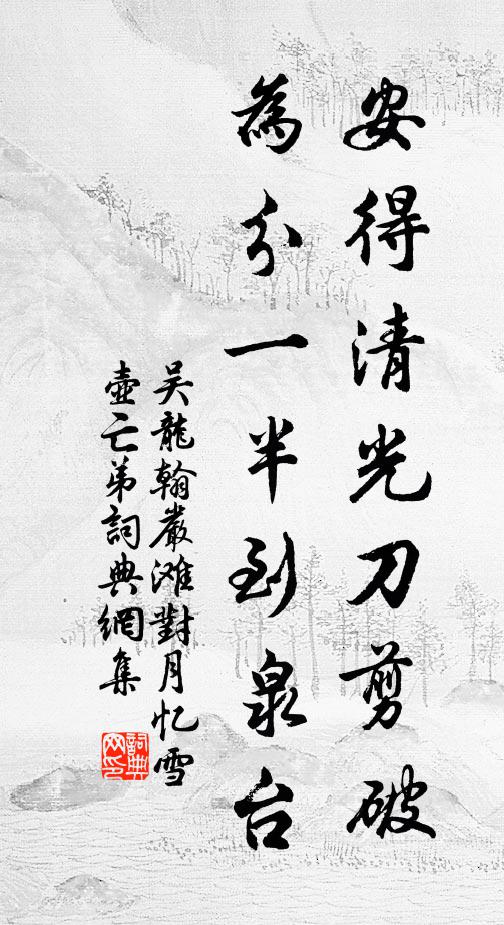 安得清光刀剪破
為分一半到泉台
吴龍翰嚴滩對月忆雪
壺亡弟詞典網集
詞典網印